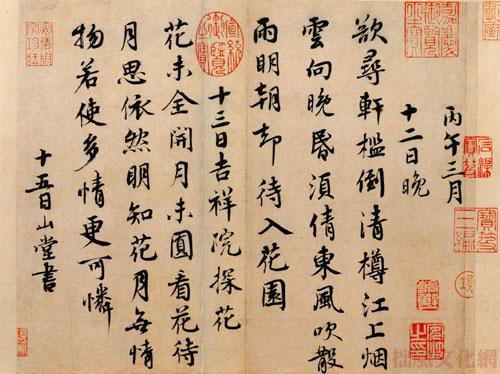 丙午三月
十二日晚
欲尋軒檻倒清樽江上烟
雲向晚昏須倩東風吹散
雨明朝却待入花園
十三日吉祥院探花
花未全開月未圓看花待
月思依然明知花月無情
物若使多情更可憐
十五日山堂書
嘉慶御覽之寶
宣統御覽之寶
拙風文化網